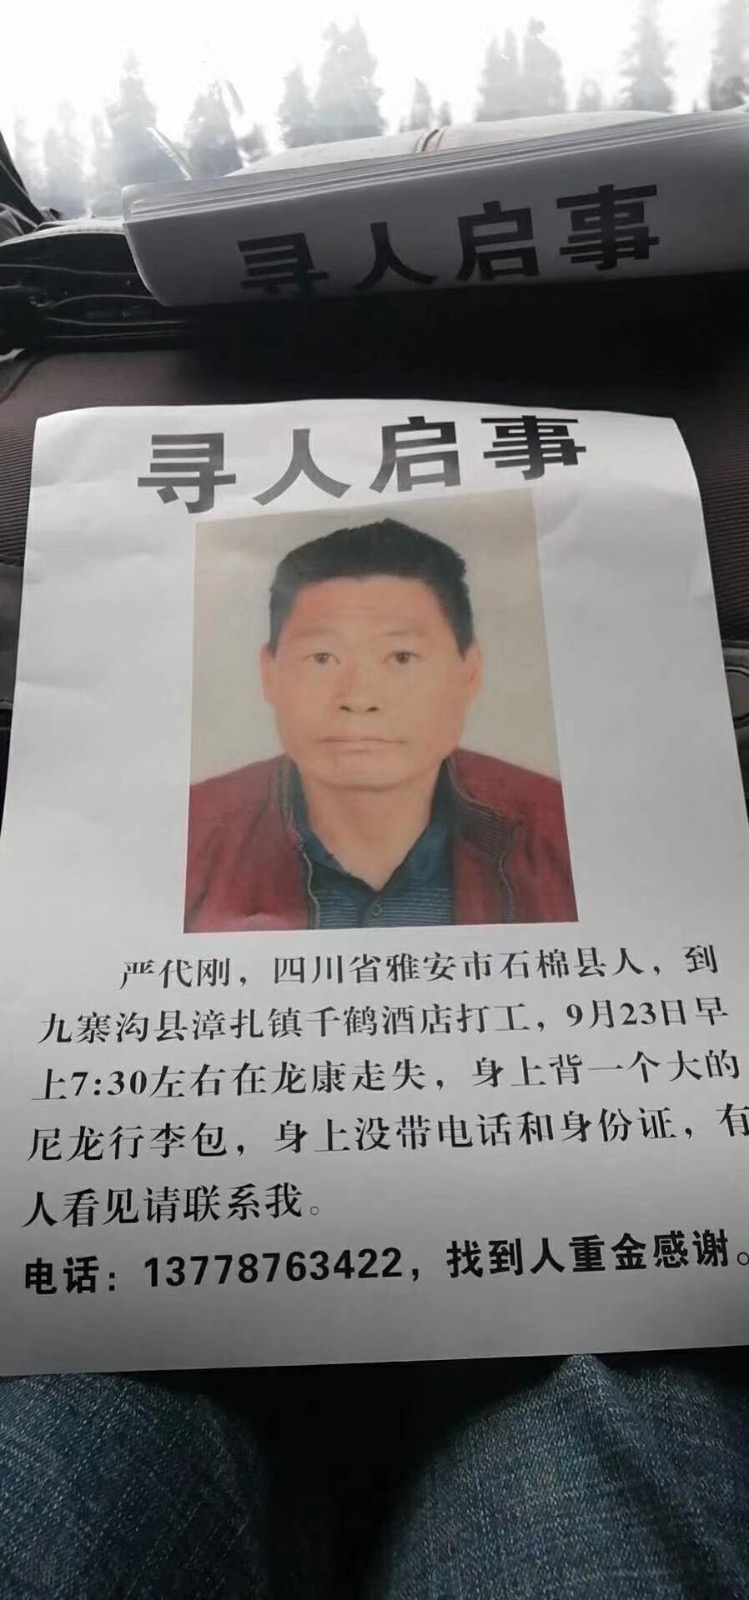 寻人启事
寻人启事
严代刚，四川省雅安市石棉县人，到
九寨沟县漳扎镇千鹤酒店打工，9月23日早
上7:30左右在龙康走失，身上背一个大的
尼龙行李包，身上没带电话和身份证，有
人看见请联系我。
电话：13778763422，找到人重金感谢。